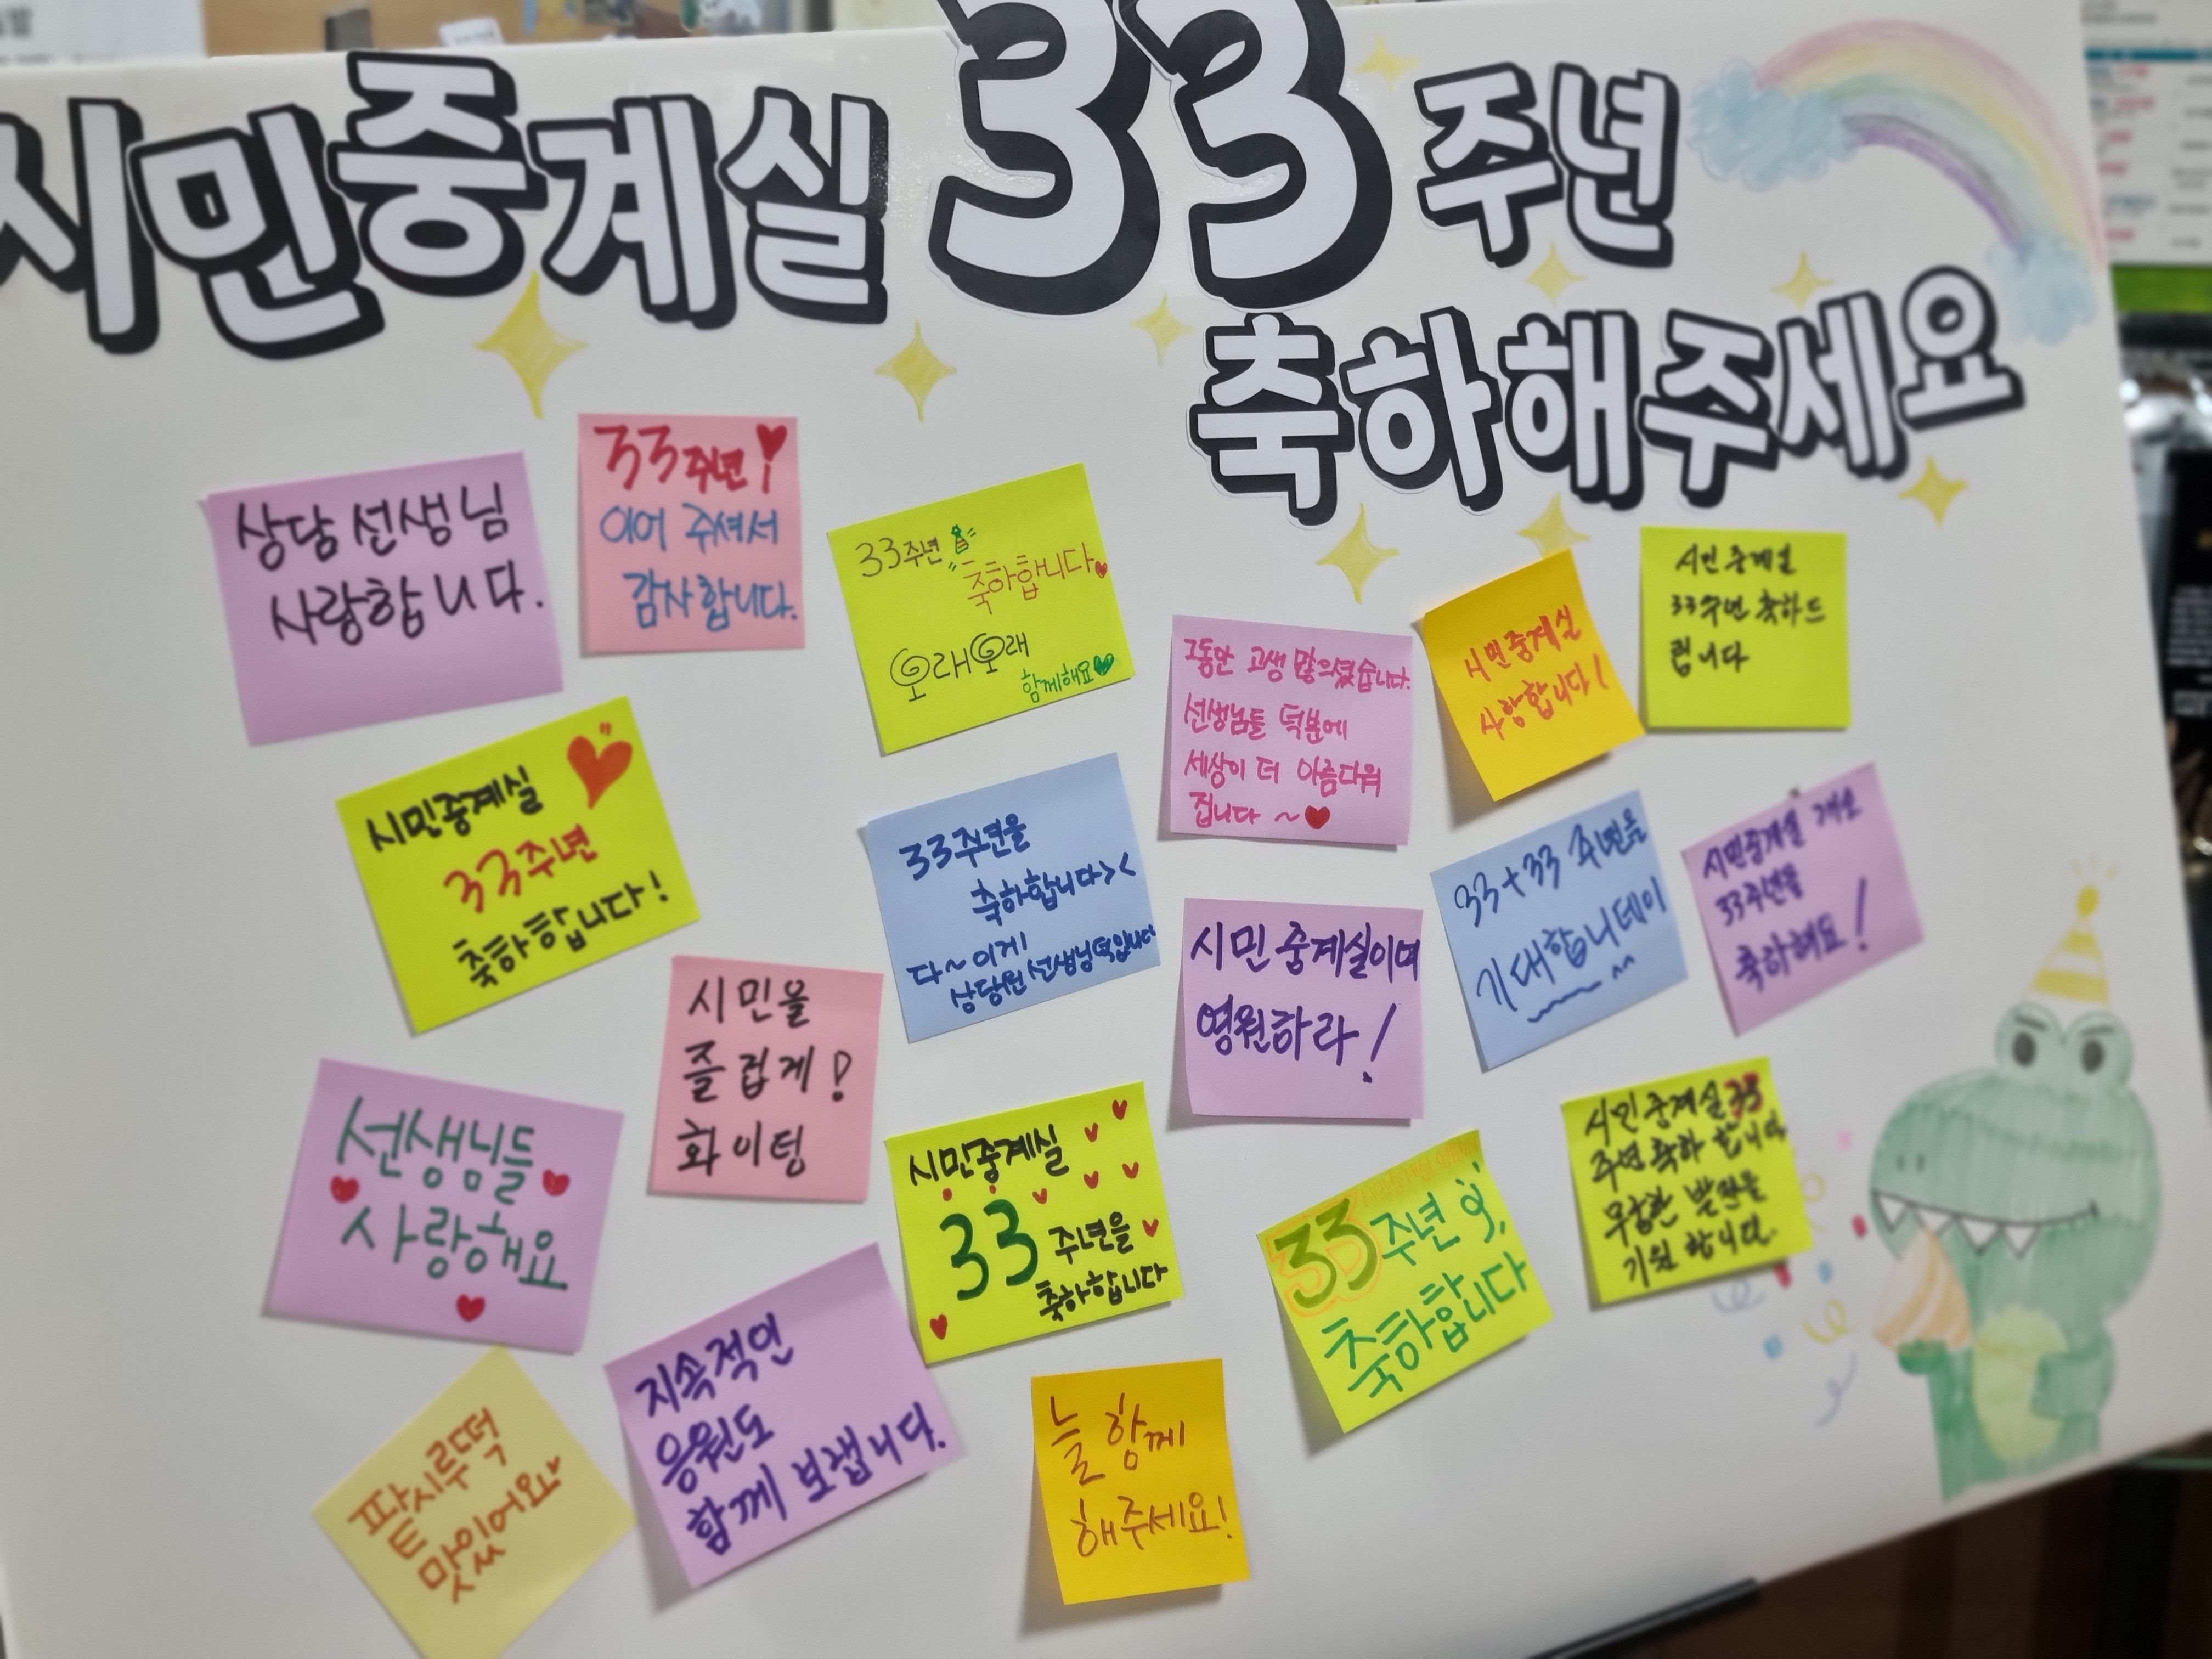 시민중계실 33주년
축하해주세요
상담선생님
사랑합니다.
33주년!
이어 주셔서
감사합니다.
33주년
축하합니다
오래오래
함께해요
그동안 고생 많으셨습니다.
선생님들 덕분에
세상이 더 아름다워
집니다 ~
시민중계실
사랑합니다!
시민중계실
33주년 축하드
립니다
시민중계실
33주년
축하합니다!
33주년을
축하합니다><
다~이게
상담원 선생님덕입니다
시민중계실이여
영원하라!
33+33 주년을
기대합니데이
^^
시민중계실 개소
33주년을
축하해요!
시민을
즐겁게!
화이팅
선생님들
사랑해요
시민중계실
33 주년을
축하합니다
33주년
축하합니다
시민중계실 33
주년 축하 합니다
무궁한 발전을
기원 합니다.
팥시루떡
맛있어요
지속적인
응원도
함께 보냅니다.
늘 함께
해주세요!